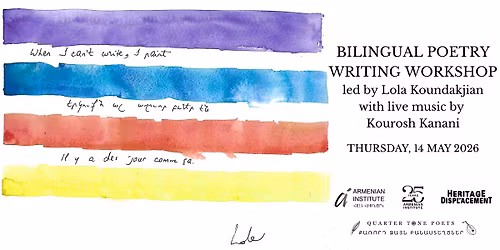 When I can't write, I paint
Il y a des jour comme sa.
Lola
BILINGUAL POETRY
WRITING WORKSHOP
led by Lola Koundakjian
with live music by
Kourosh Kanani
THURSDAY, 14 MAY 2026
ARMENIAN
INSTITUTE
25
YEARS
ARMENIAN
INSTITUTE
HERITAGE
DISPLACEMENT
QUARTER TONE POETS